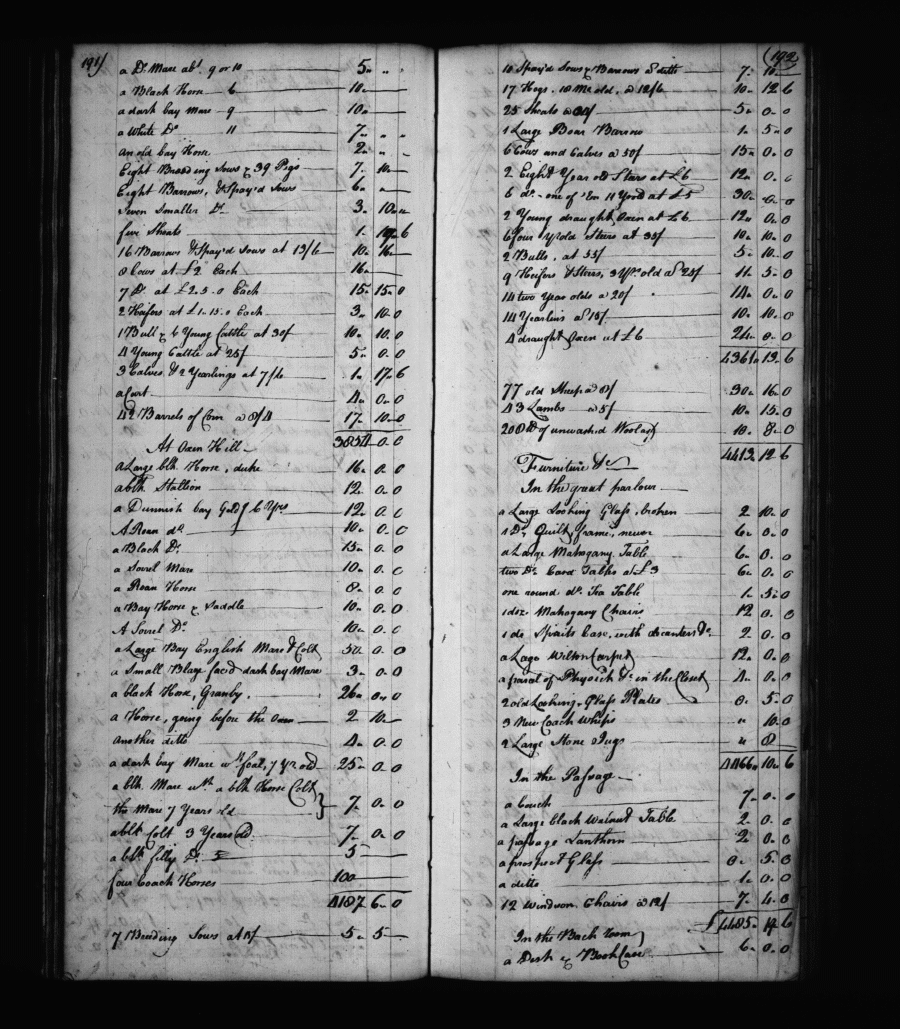 191
a Do. Mare abt. 9 or 10 5 " "
a Black Horse 6 10
a dark bay mare 9 10
a White Do. 11 7 " "
An old bay Horse 2 " "
Eight Breeding Sows & 39 Pigs 7 10
Eight Barrows, & Spay'd Sows 6
Seven Smaller Do. 3 10
five Shoats 1 6
16 Barrows & Spay'd Sows at 13/6 10 16
8 Cows at £2 Each 16
7 Do. at £2.5.0 Each 15 15 0
2 Heifers at £1.15.0 Each 3 10 0
1 Bull & 6 Young Cattle at 30/ 10 10 0
4 Young Cattle at 25/ 5 0 0
3 Calves & 2 Yearlings at 7/6 1 17 6
a Cart 4 0 0
42 Barrels of Corn a 8/4 17 10 0
At Oxen Hill 3854 0 0
a Large blk Horse, duke 16 0 0
a blk Stallion 12 0 0
a Dunnish bay Geldg 6 Yrs 12 0 0
A Roan do. 10 0 0
a Black Do. 15 0 0
a Sorrel Mare 10 0 0
a Roan Horse 8 0 0
a Bay Horse & Saddle 10 0 0
A Sorrel Do. 10 0 0
a Large Bay English Mare & Colt 50 0 0
a Small Blaze fac'd dark bay Mare 3 0 0
a black Horse, Granby 26 0 0
a Horse, going before the Oxen 2 10
Another ditto 4 0 0
a dark bay Mare wth foal, 7 Yr old 25 0 0
a blk Mare wth a blk Horse Colt
the Mare 7 Years old } 7 0 0
a blk Colt 3 Years Old 7 0 0
a blk filly Do. 5
four Coach Horses 100
4187 6 0
7 Breeding Sows at 15/ 5 5
192
10 Spay'd Sows & Barrows a ditto 7 10
17 Hogs. 18 Mo old, a 12/6 10 12 6
25 Shoats a 5 0 0
1 Large Boar Barrow 1 5 0
6 Cows and Calves a 50/ 15 0 0
2 Eight Year old Steers at £6 12 0 0
6 do. one of 'Em 11 Yrs old at £5 30 0 0
2 Young draught Oxen at £6 12 0 0
6 four Yr old Steers at 35/ 10 10 0
2 Bulls, at 55/ 5 10 0
9 Heifers & Steers, 3 Yrs old a 25/ 11 5 0
14 two Year olds a 20/ 14 0 0
14 Yearlins a 15/ 10 10 0
4 draught Oxen at £6 24 0 0
4361 13 6
77 old Sheep a 8/ 30 16 0
43 Lambs a 5/ 10 15 0
208 lb of unwashed Wool 10 8 0
4413 12 6
Furniture &c
In the great parlour
a Large Looking Glass, broken 2 10 0
1 Do. Quilt, frame, newer 6 0 0
a Large Mahogany Table 6 0 0
two Do. Card Tables a £3 6 0 0
one round do. Tea Table 1 5 0
1 doz. Mahogany Chairs 12 0 0
1 do Spirits Case, with decanters &c. 2 0 0
a Large Wilton Carpet 12 0 0
a parcel of Physick &c. in the Closet 4 0 0
2 old Looking Glass Plates 0 5 0
3 New Coach Whips " 10 0
2 Large Stone Jugs " 8
4466 10 6
In the Passage
a Couch 7 0 0
a Large black Walnut Table 2 0 0
a passage Lanthorn 2 0 0
a prospect Glass 0 5 0
a ditto 1 0 0
12 Windsor Chairs a 12/ 7 4 0
£4485 6
In the Back room
a Desk & Book Case 6 0 0